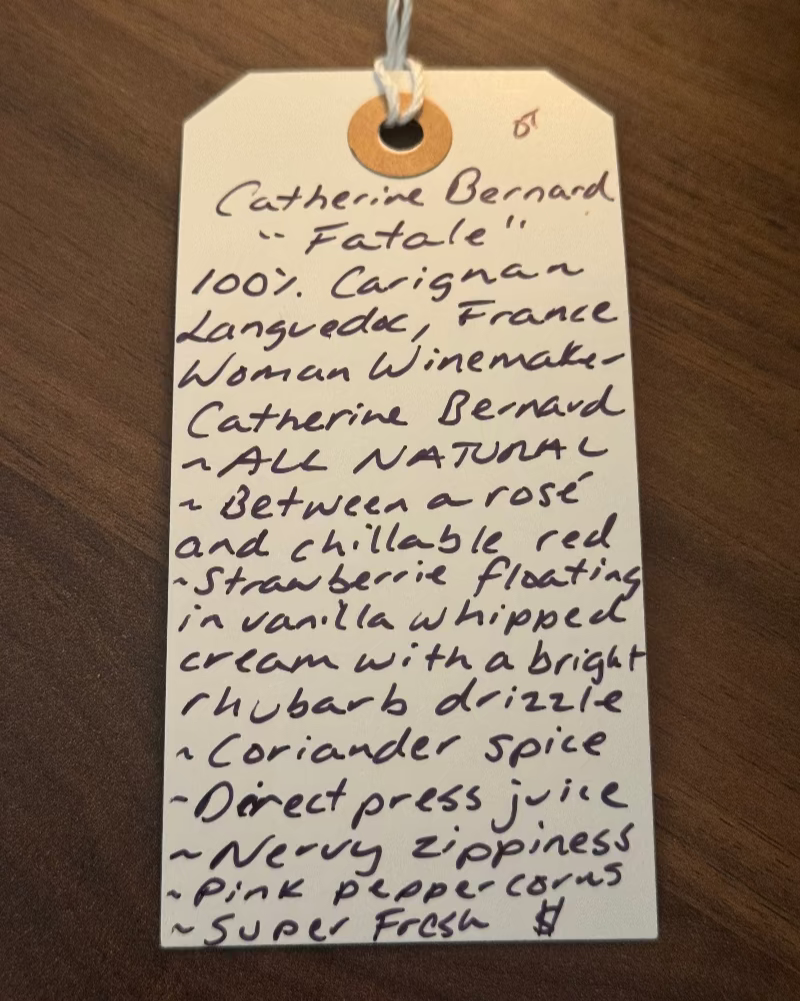 Catherine Bernard
"Fatale"
100% Carignan
Languedoc, France
Woman Winemaker
Catherine Bernard
~ ALL NATURAL
~ Between a rosé
and chillable red
~ Strawberrie floating
in vanilla whipped
cream with a bright
rhubarb drizzle
~ Coriander spice
~ Direct press juice
~ Nervy zippiness
~ Pink peppercorns
~ Super Fresh